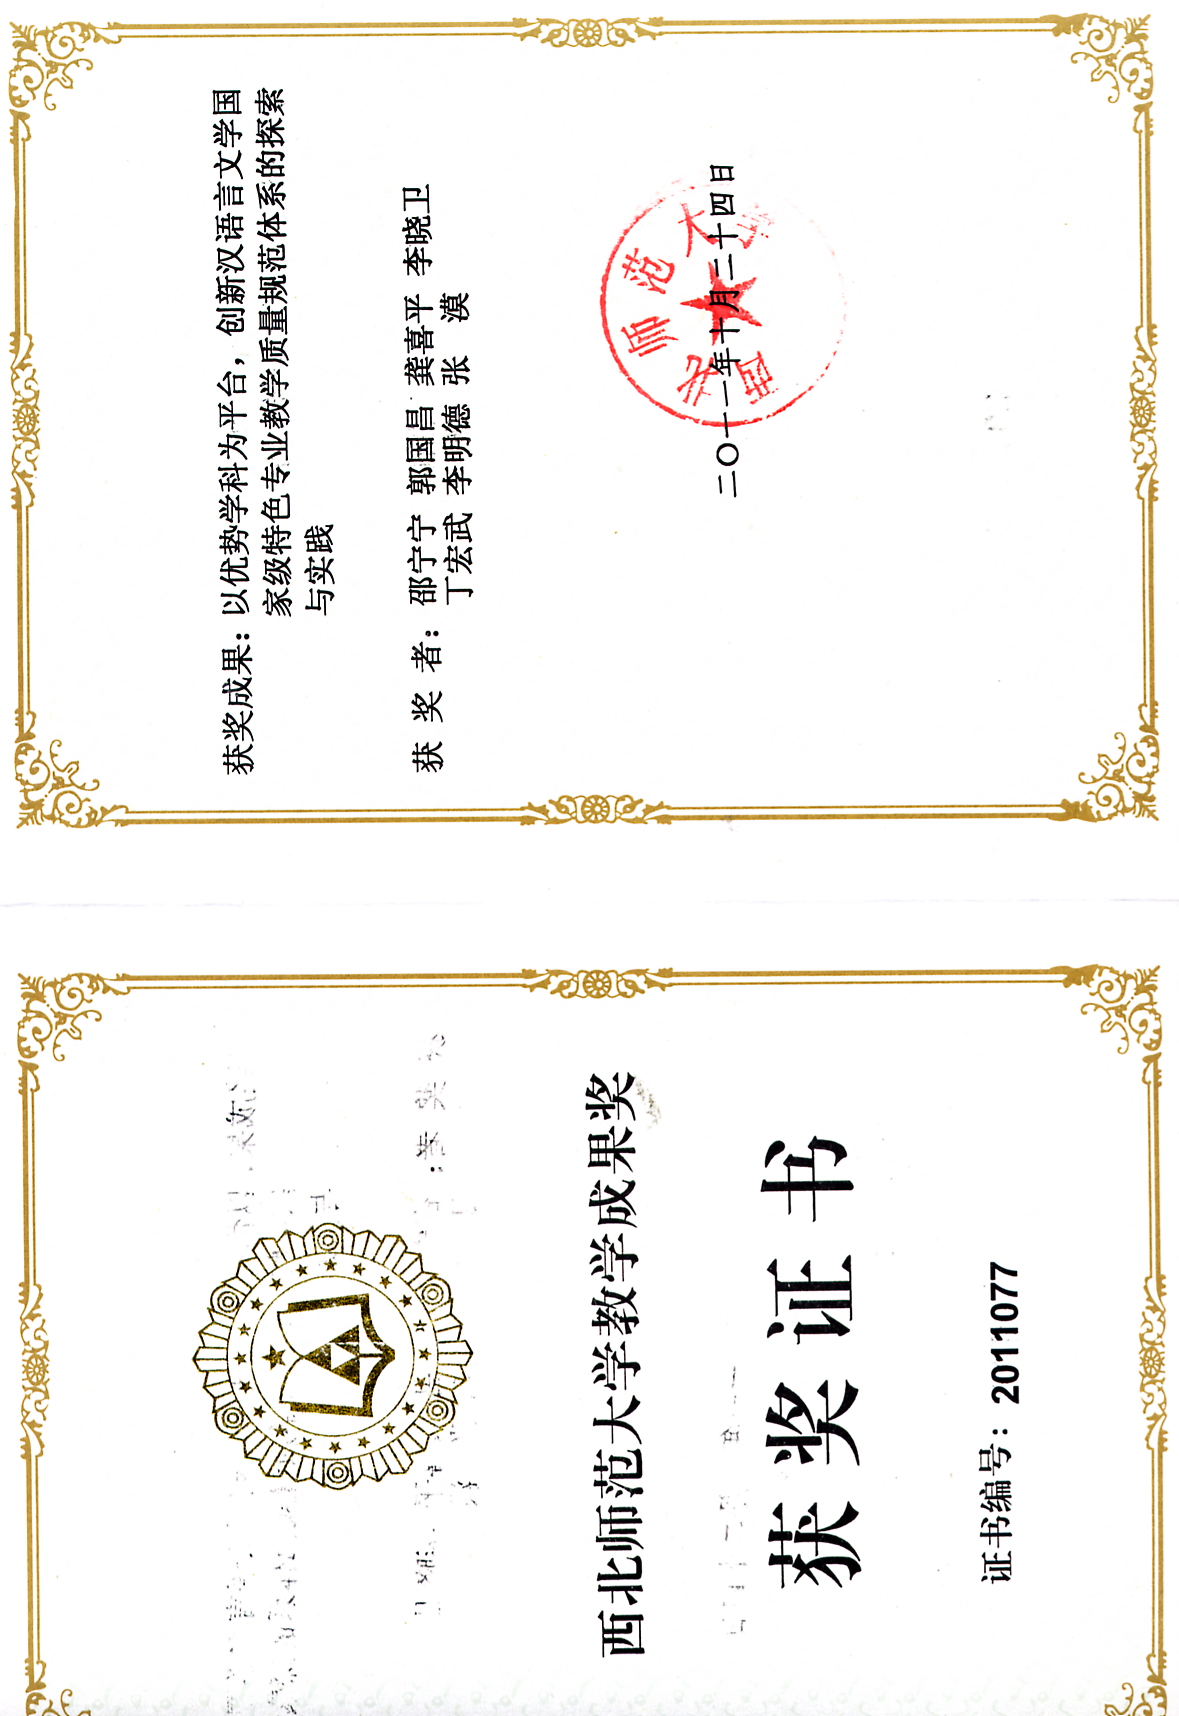 西北师范大学教学成果奖
获奖证书
证书编号：2011077
获奖成果：以优势学科为平台，创新汉语言文学国
家级特色专业教学质量规范体系的探索
与实践
获 奖 者：邵宁宁 郭国昌 龚喜平 李晓卫
丁宏武 李明德 张 漠
西北师范大学
二〇一一年十月二十四日